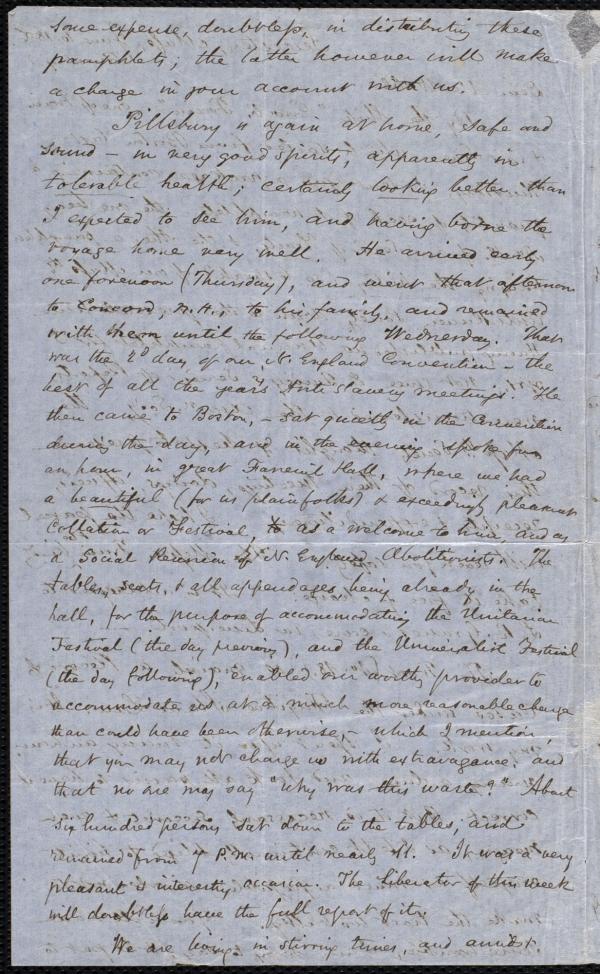 some expense, doubtless, in distributing these
pamphlets; the latter however will make
a charge in your account with us.
Pillsbury is again at home, safe and
sound – in very good spirits, apparently in
tolerable health; certainly looking better than
I expected to see him, and having borne the
voyage home very well. He arrived early
one forenoon (Thursday), and went that afternoon
to Concord, N.H., to his family, and remained
with them until the following Wednesday. That
was the 2d day of our N. England Convention – the
best of all the year's Anti slavery meetings. He
then came to Boston, – sat quietly in the Convention
during the day, and in the evening spoke for
an hour, in great Faneuil Hall, where we had
a beautiful (for us plain folks) & exceedingly pleasant
Collation or Festival, as a welcome to him, and as
a Social Reunion of N. England Abolitionists. The
tables, seats, & all appendages, being already in the
hall, for the purpose of accommodating the Unitarian
Festival (the day previous), and the Universalist Festival
(the day following), enabled our worthy provider to
accommodate us at a much more reasonable charge
than could have been otherwise, – which I mention,
that you may not charge us with extravagance, and
that no one may say "why was this waste?" About
six hundred persons sat down to the tables, and
remained from 7 P.M. until nearly 11. It was a very
pleasant & interesting occasion. The Liberator of this week
will doubtless have the full report of it.
We are living in stirring times, and amidst